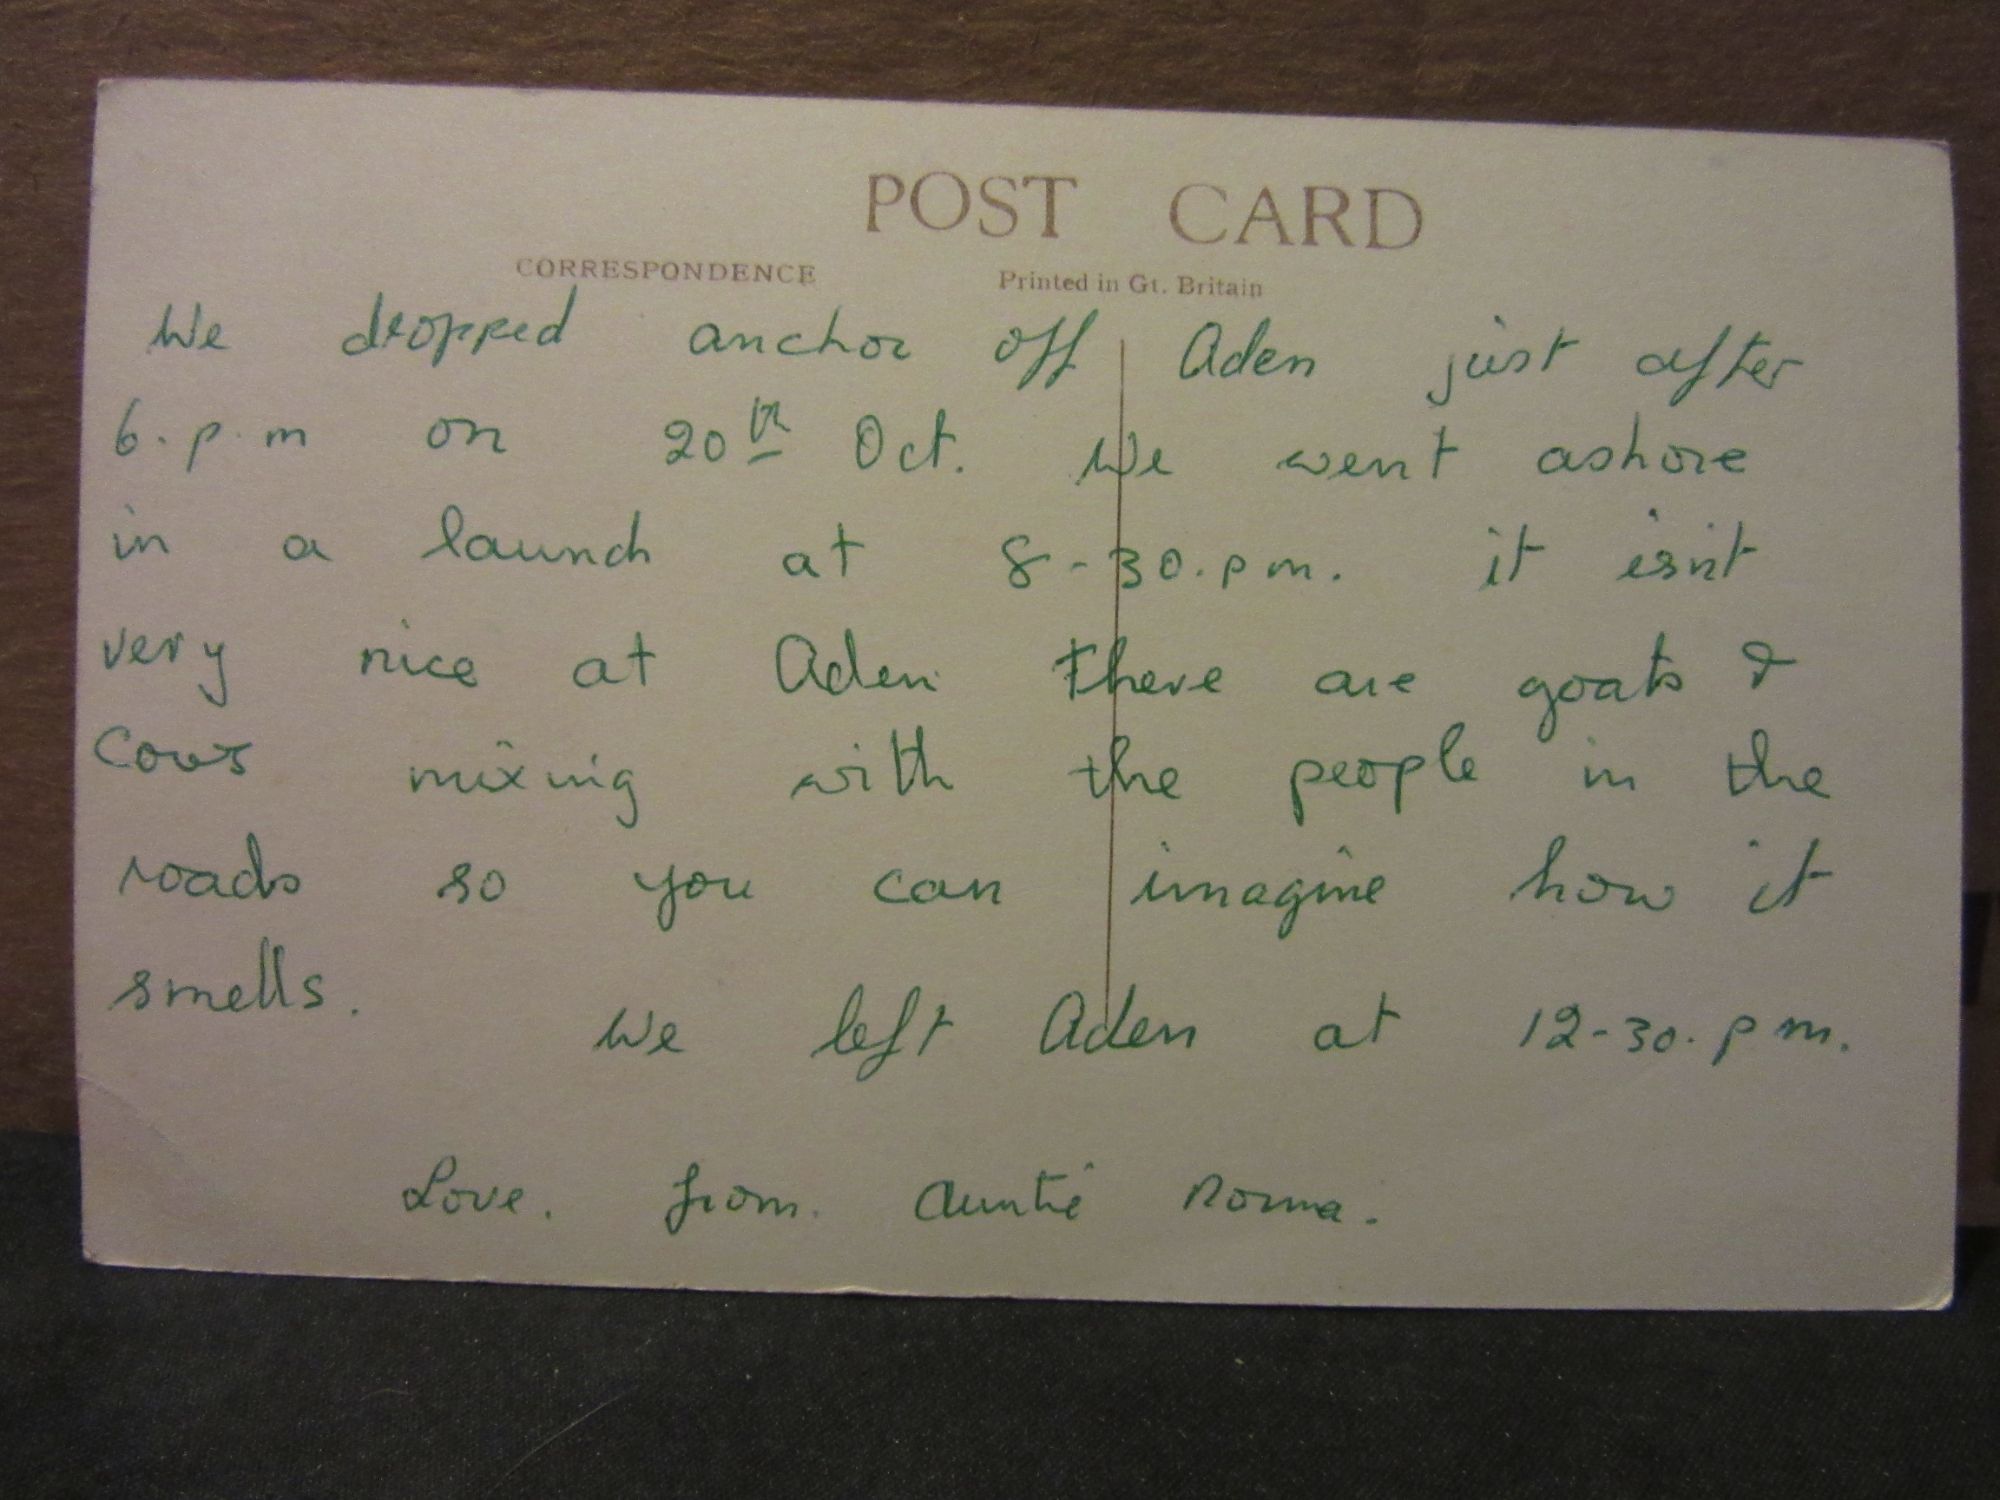 POST CARD
CORRESPONDENCE
Printed in Gt. Britain
We dropped anchor off Aden just after
6.p.m on 20th Oct. We went ashore
in a launch at 8-30.p.m. it isn't
very nice at Aden there are goats &
cows mixing with the people in the
roads so you can imagine how it
smells.
We left Aden at 12-30.p.m.
Love. from. Auntie Norma.